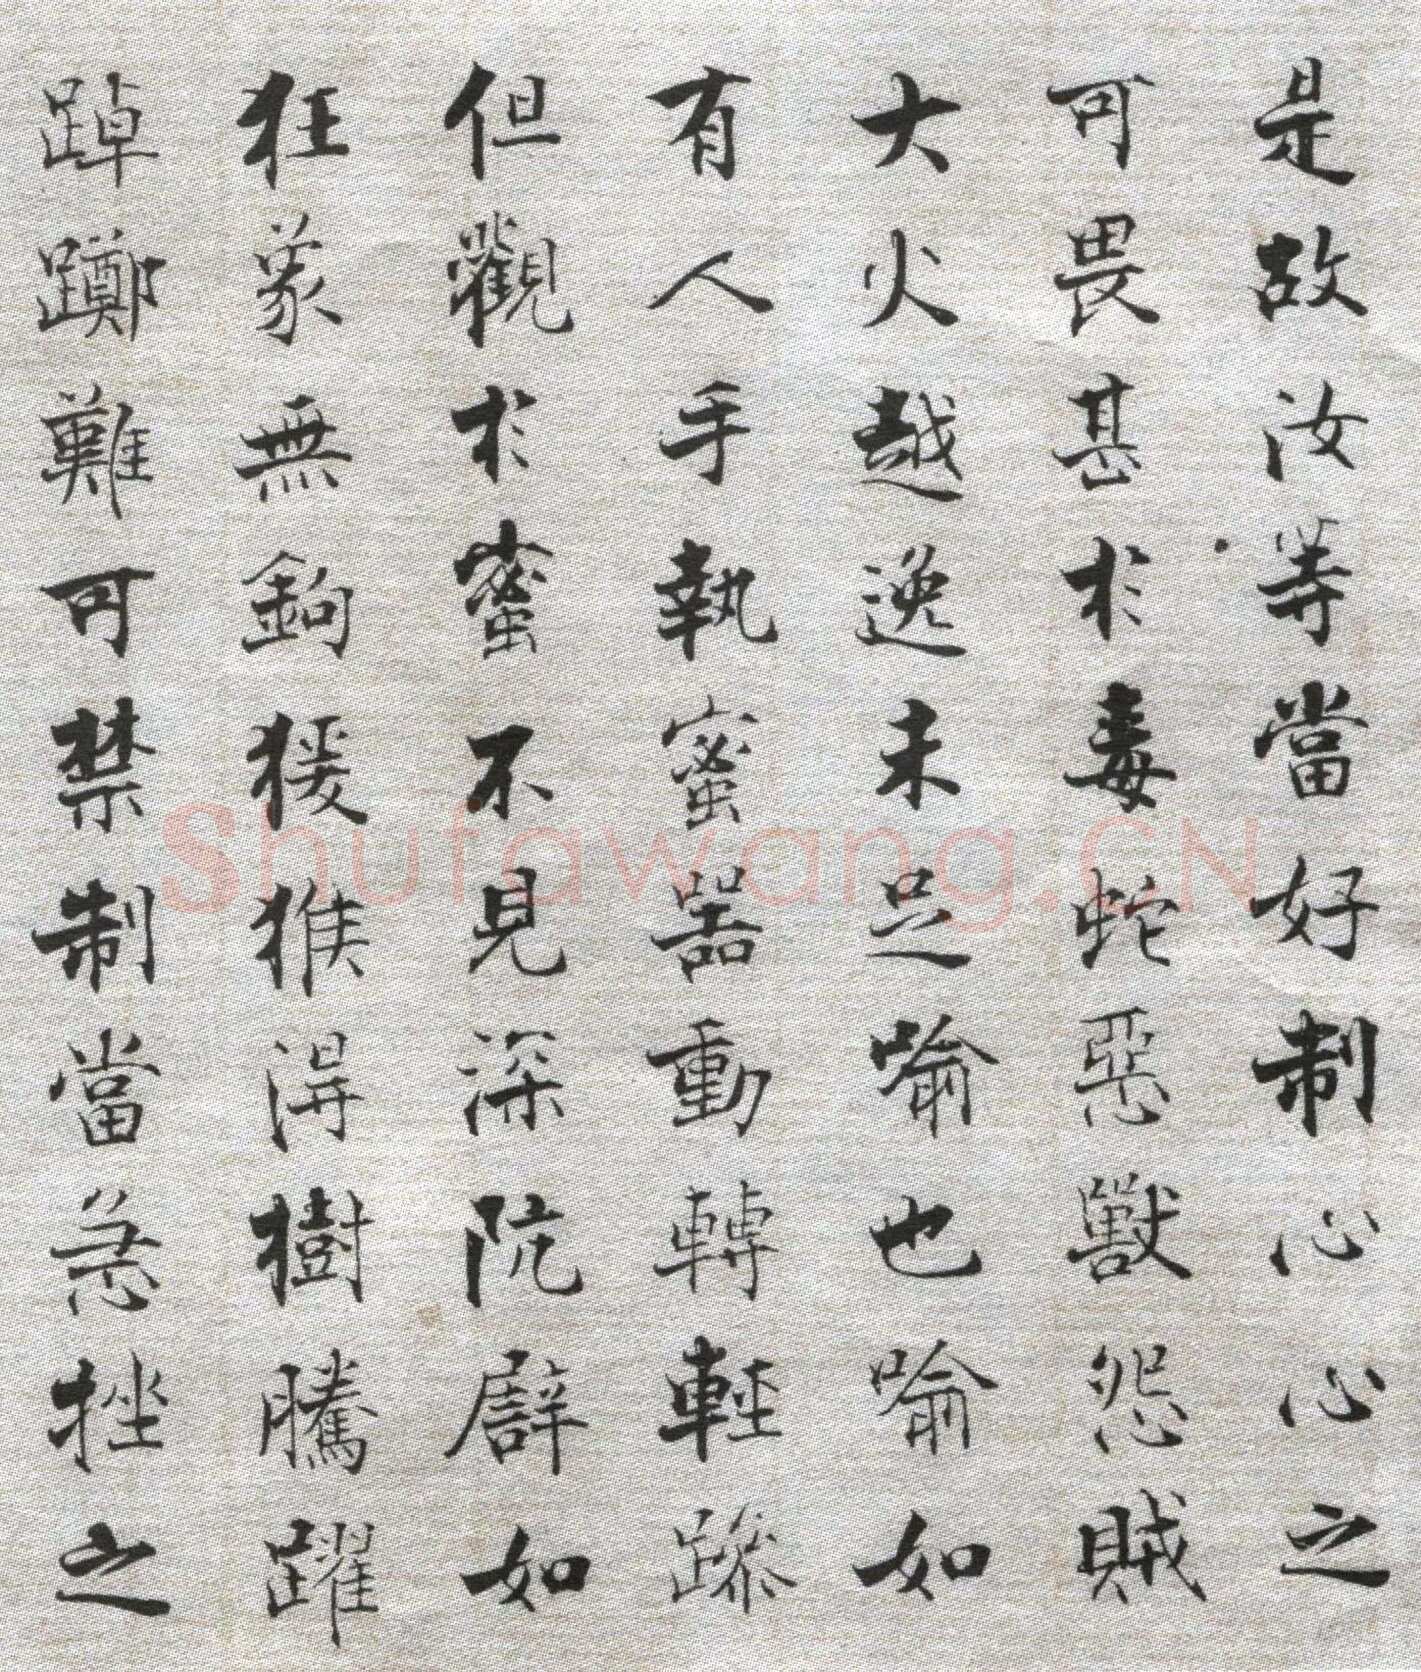 是故汝等當好制心心之
可畏甚於毒蛇惡獸怨賊
大火越逸未足喻也喻如
有人手執蜜器動轉輕躁
但觀於蜜不見深阬譬如
狂象無鉤猨猴得樹騰躍
踔躑難可禁制當急挫之
Shufawang.CN